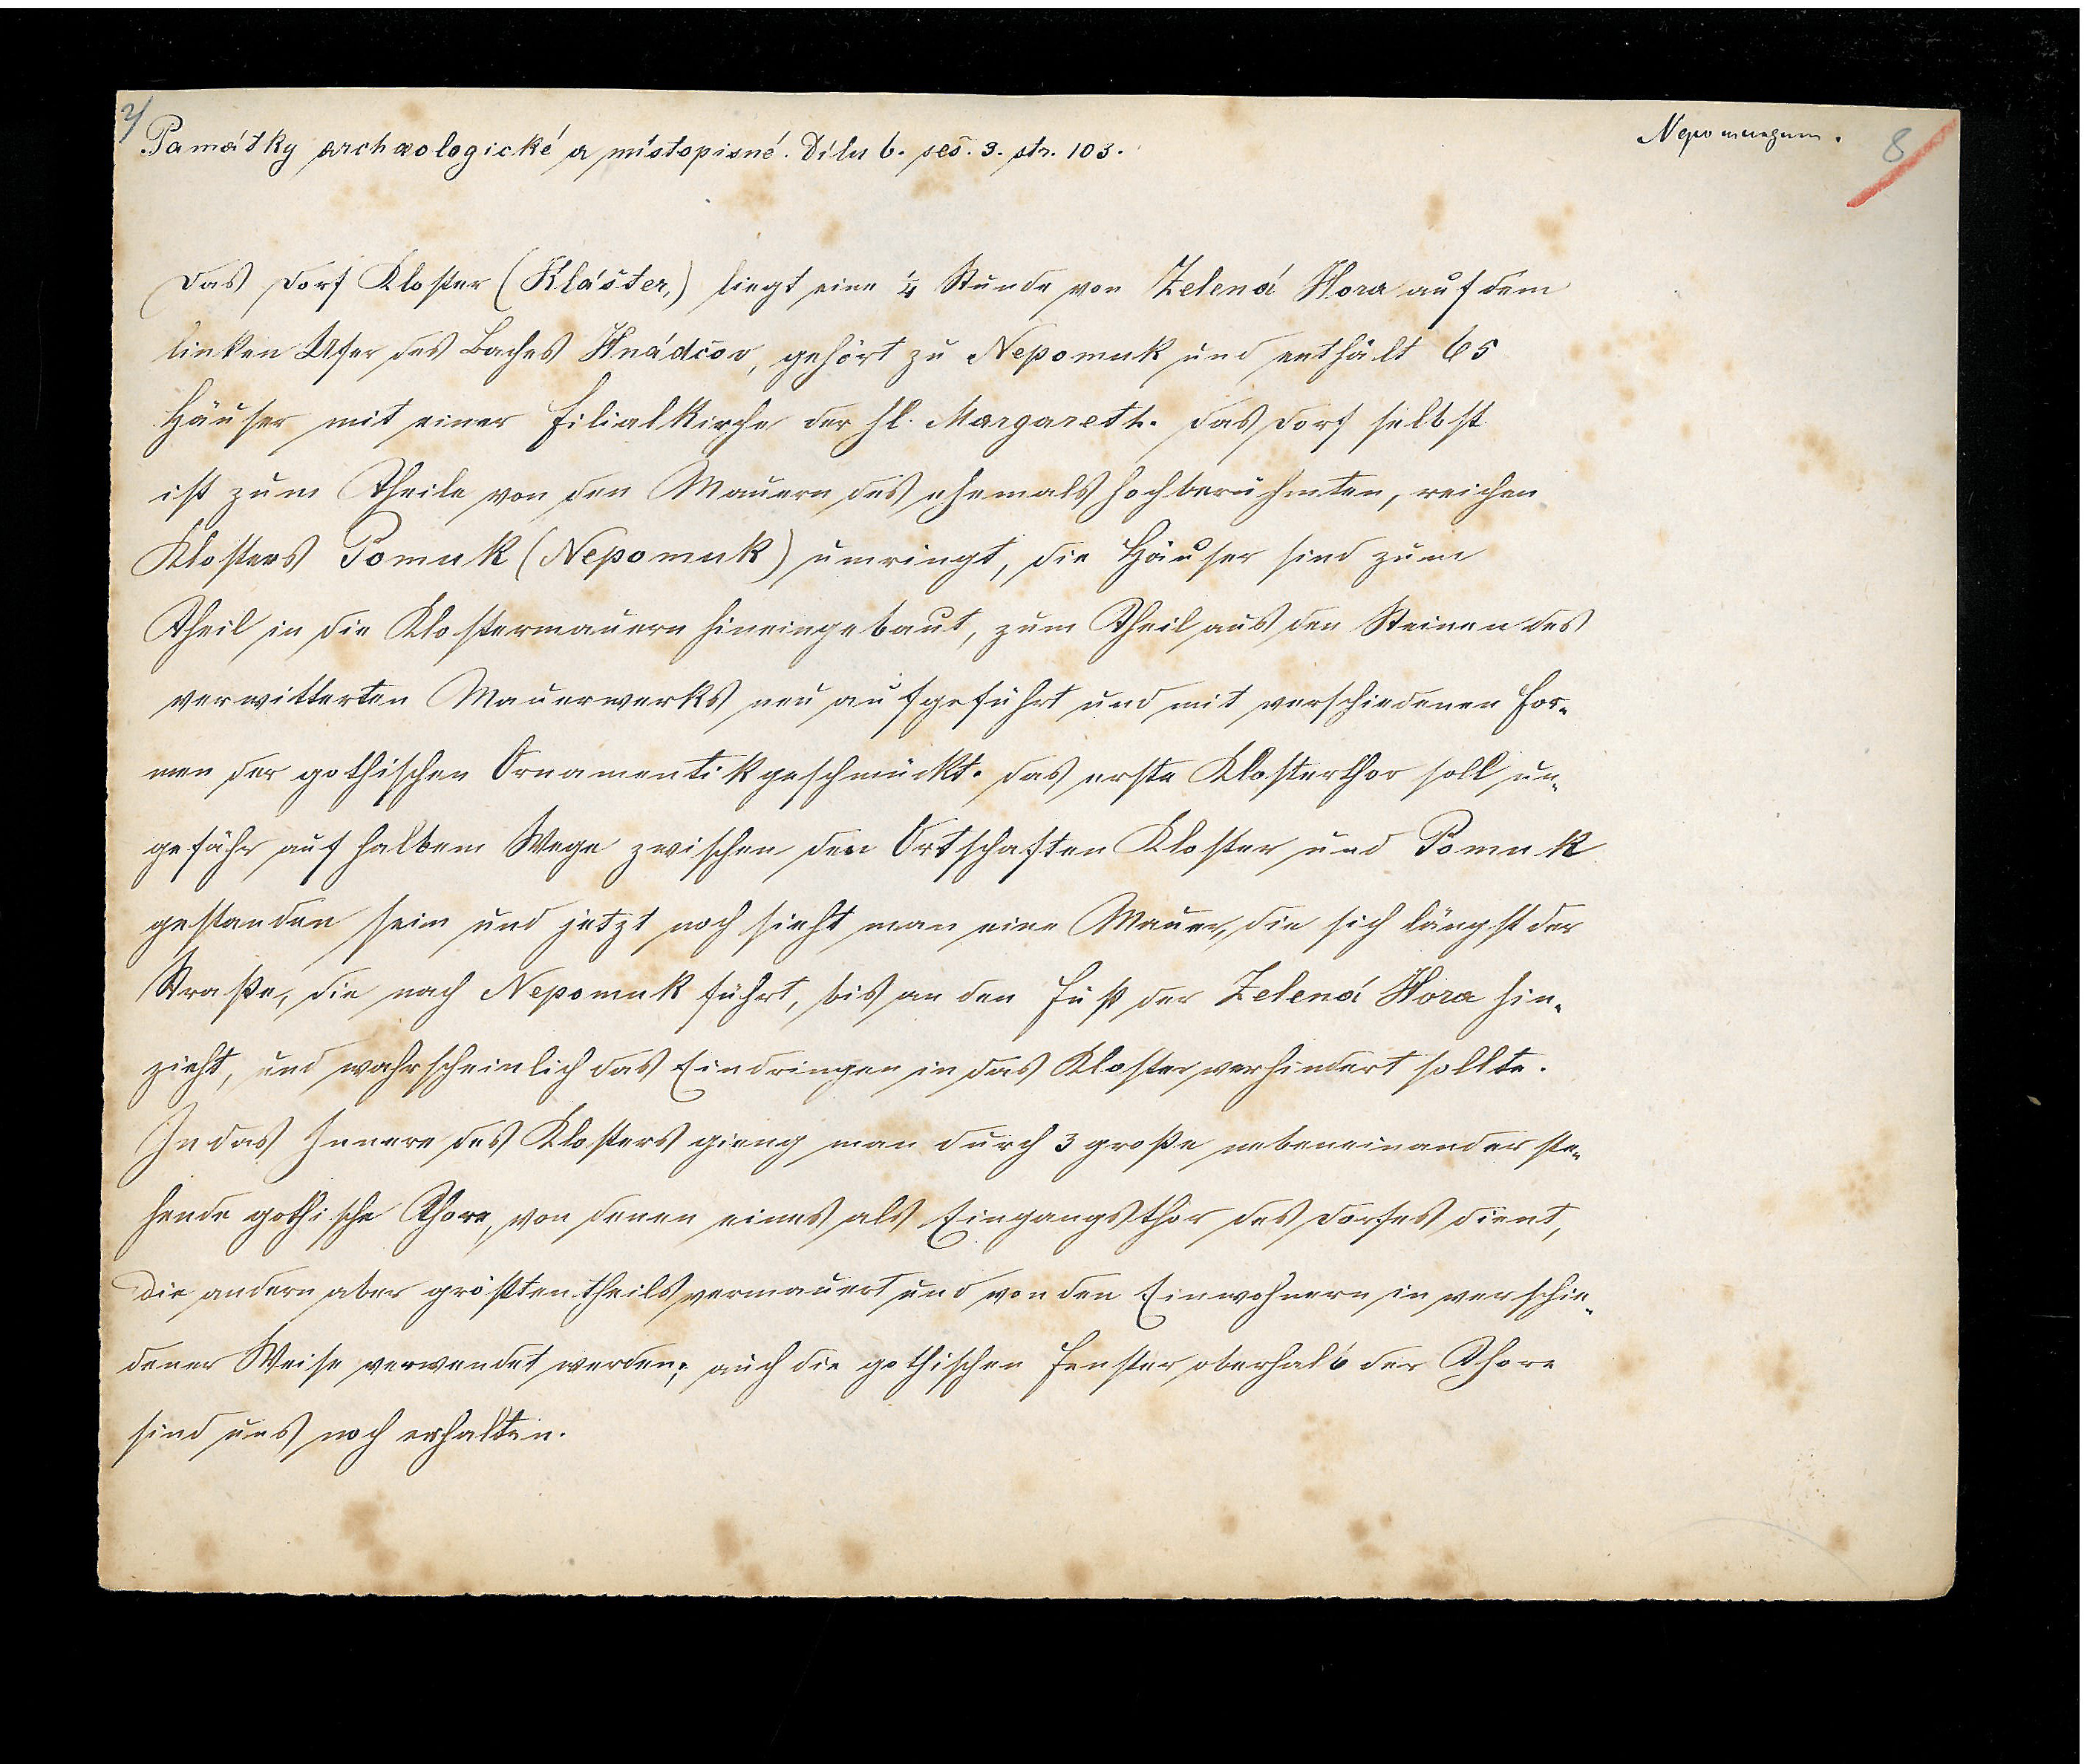 2/
Památky archæologické a místopisné. Dílu 6. seš. 3. str. 103.
Nepomucenum.
8
Das Dorf Kloster (Klášter,) liegt eine ¼ Stunde von Zelená Hora auf dem
linken Ufer des Baches Hnádčov, gehört zu Nepomuk und enthält 65
Häuser mit einer Filialkirche der hl. Margareth. Das Dorf selbst
ist zum Theile von den Mauern des ehemals hochberühmten, reichen
Klosters Pomuk (Nepomuk) umringt, die Häuser sind zum
Theil in die Klostermauern hineingebaut, zum Theil aus den Steinen des
verwitterten Mauerwerks neu aufgeführt und mit verschiedenen For-
men der gothischen Ornamentik geschmückt. Das erste Klosterthor soll un-
gefähr auf halbem Wege zwischen den Ortschaften Kloster und Pomuk
gestanden sein und jetzt noch sieht man eine Mauer, die sich längst der
Straße, die nach Nepomuk führt, bis an den Fuß der Zelená Hora hin-
zieht, und wahrscheinlich das Eindringen in das Kloster verhindert sollte.
In das Innere des Klosters gieng man durch 3 große nebeneinander ste-
hende gothische Thore, von denen eines als Eingangsthor des Dorfes dient,
die andern aber größtentheils vermauert und von den Einwohnern in verschie-
dener Weise verwendet werden; auch die gothischen Fenster oberhalb der Thore
sind uns noch erhalten.